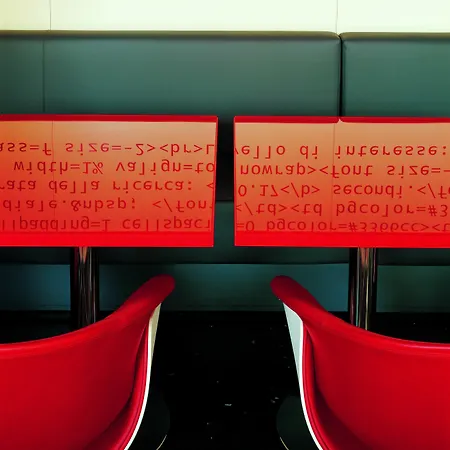 lpadding=1 cellspaci
diale.&nbsp; </fon
rata della ricerca: <
width=1% valign=to
ass=f size=-2><br>L
=0 bgcolor=#3366cc><t
</td><td bgcolor=#3
0.17</b> secondi.</fo
nowrap><font size=-
vello di interesse: